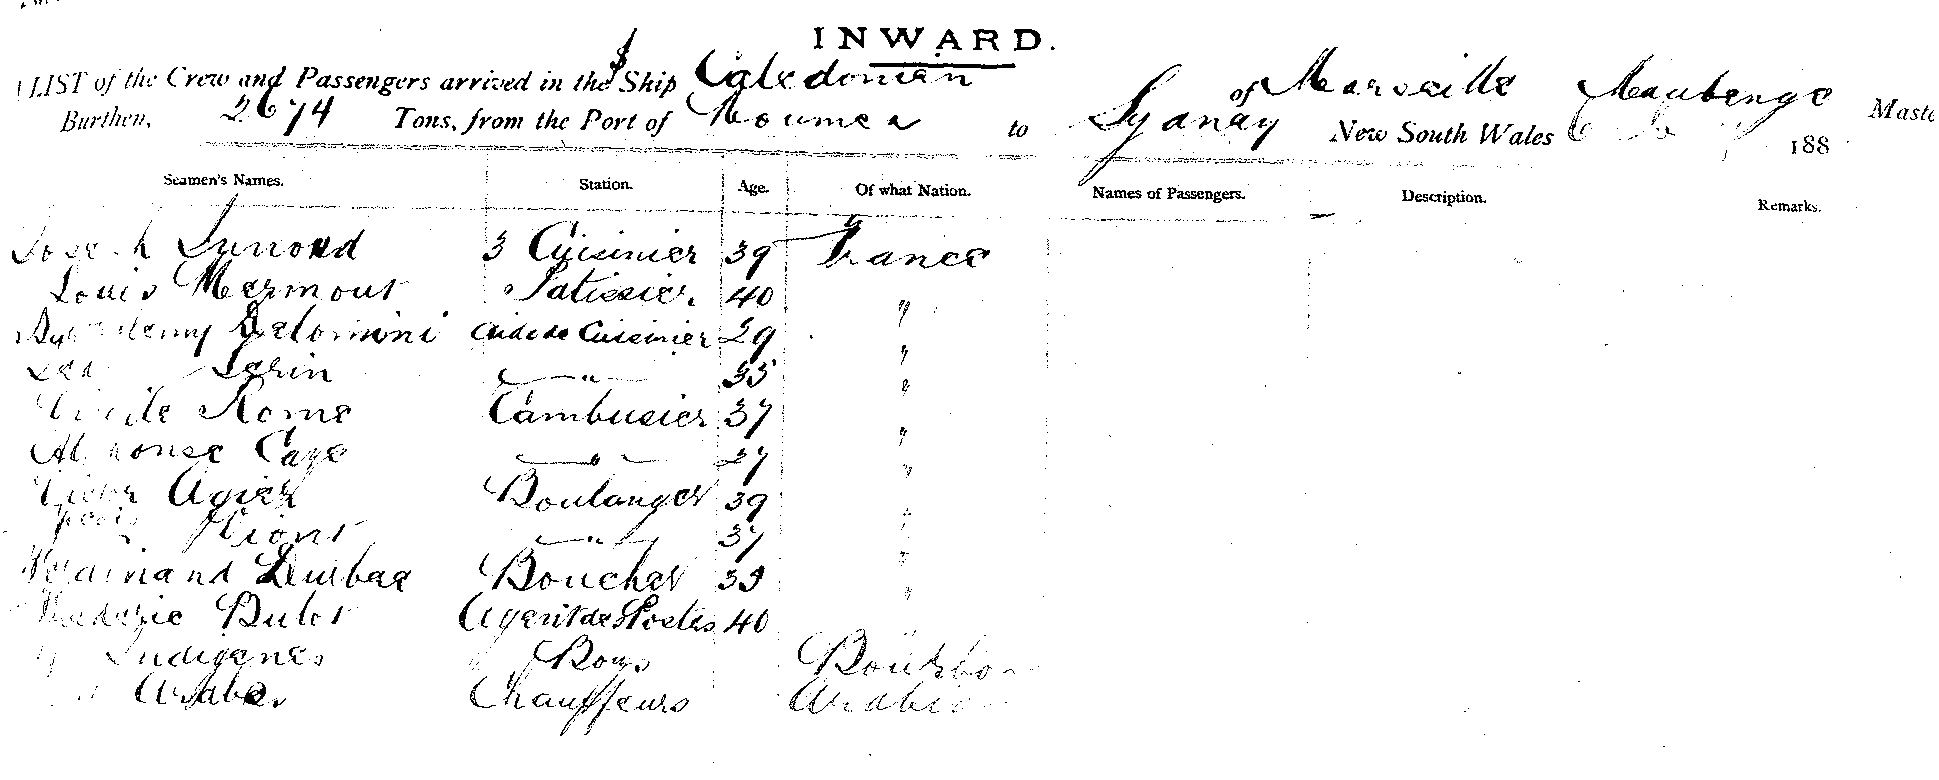 INWARD.
LIST of the Crew and Passengers arrived in the S Ship Caledonien of Marseille Maubenge Maste
Burthen, 2674 Tons, from the Port of Noumea to Sydney New South Wales 188
Seamen's Names. Station. Age. Of what Nation. Names of Passengers. Description. Remarks.
Joseph 3 Cuisinier 39 France
Louis Mermout Patissier 40 "
Delomini Aide de Cuisinier 29 "
Lerin " 35 "
Rome Cambusier 37 "
Alphonse Caze " 27 "
Victor Agier Boulanger 39 "
" 37 "
Ferdinand Boucher 39 "
Frederic Dulot Agent des Postes 40 "
Indigenes Boys Bourbon
Arabes Chauffeurs Arabia